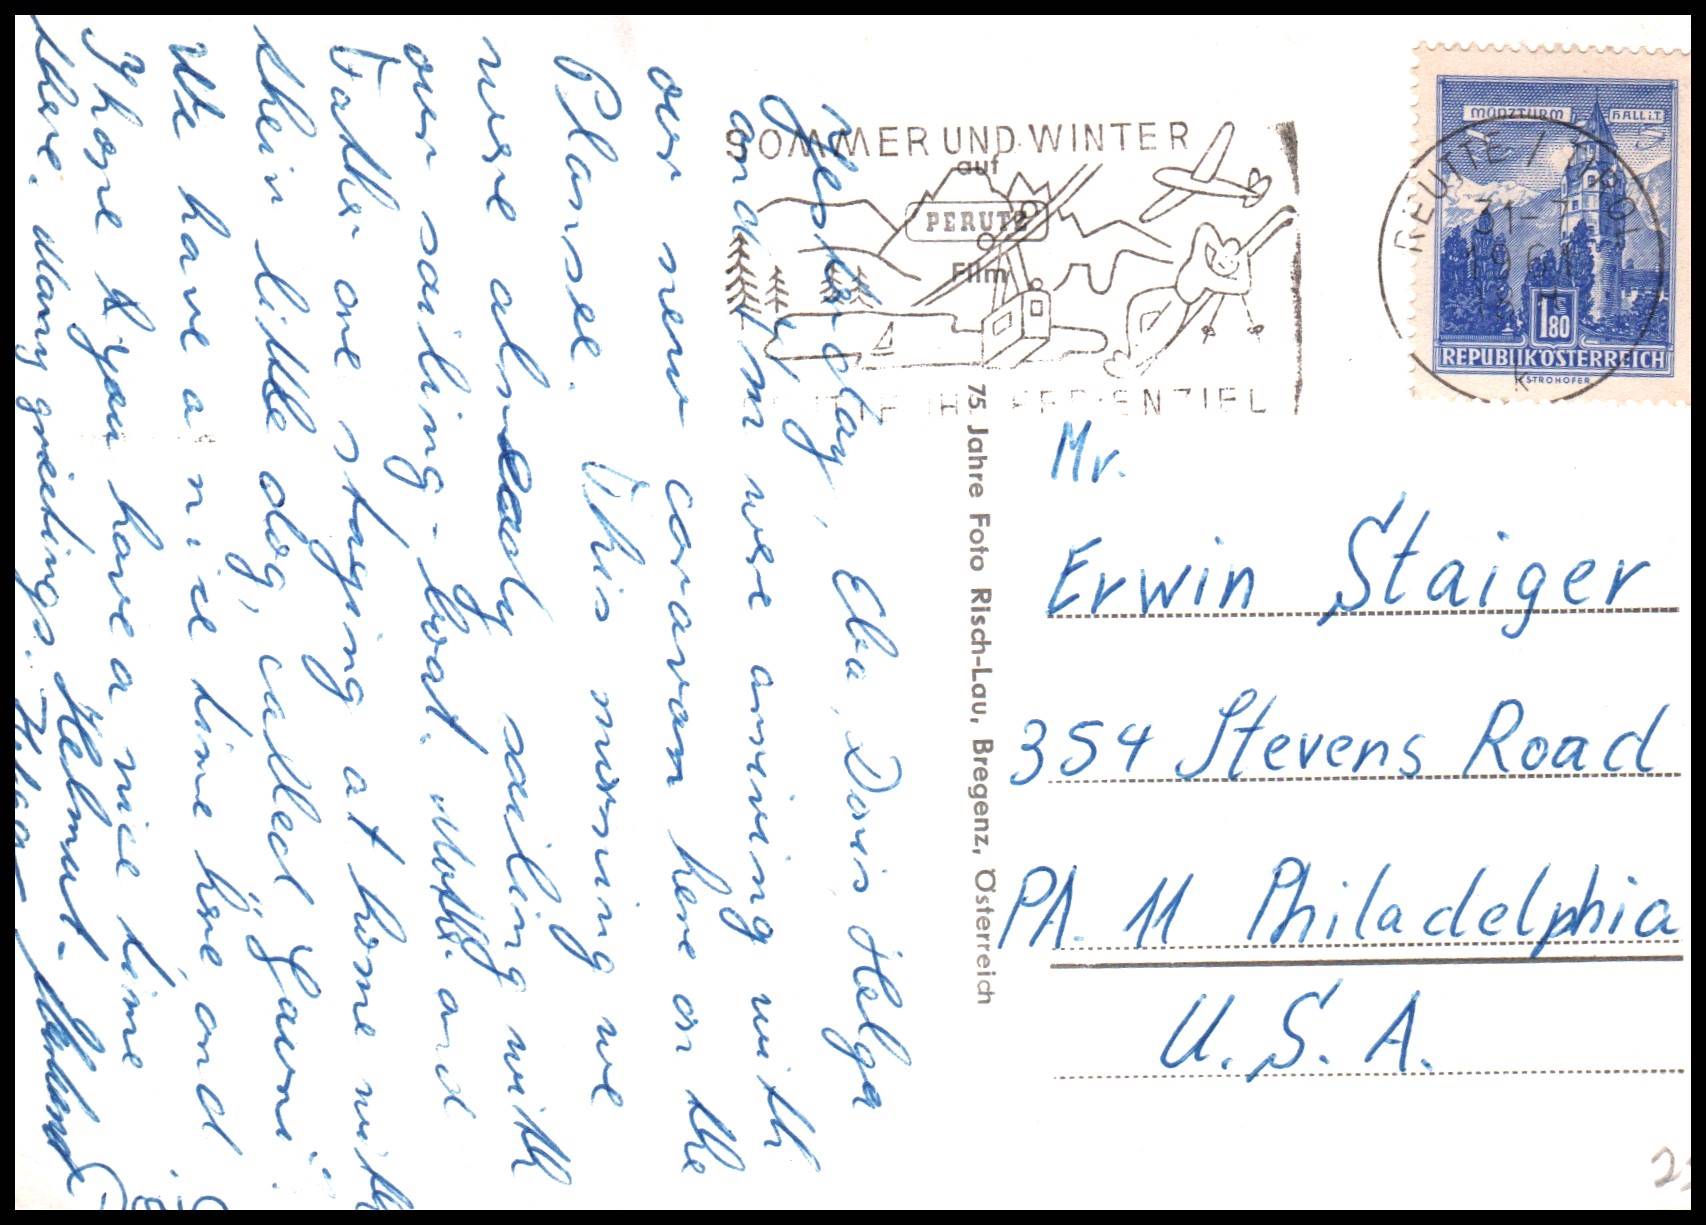 SOMMER UND WINTER
auf
PERUTZ
Film
MÜNZTURM
HALL i.T.
REUTTE / TIROL
31-7
1961
1.80
REPUBLIK ÖSTERREICH
STROHOFER
k
75 Jahre Foto Risch-Lau, Bregenz, Österreich
Yesterday, Eba, Doris, Helga
and I'm were arriving with
our new caravan here on the
Plansee. This morning we
were already sailing with
our sailing-boat. Mother and
Father are staying at home with
their little dog, called
We have a nice time here, and
I hope you have a nice time
there. Many greetings. Helmut.
Helga
Mr.
Erwin Staiger
354 Stevens Road
PA. 11 Philadelphia
U. S. A.